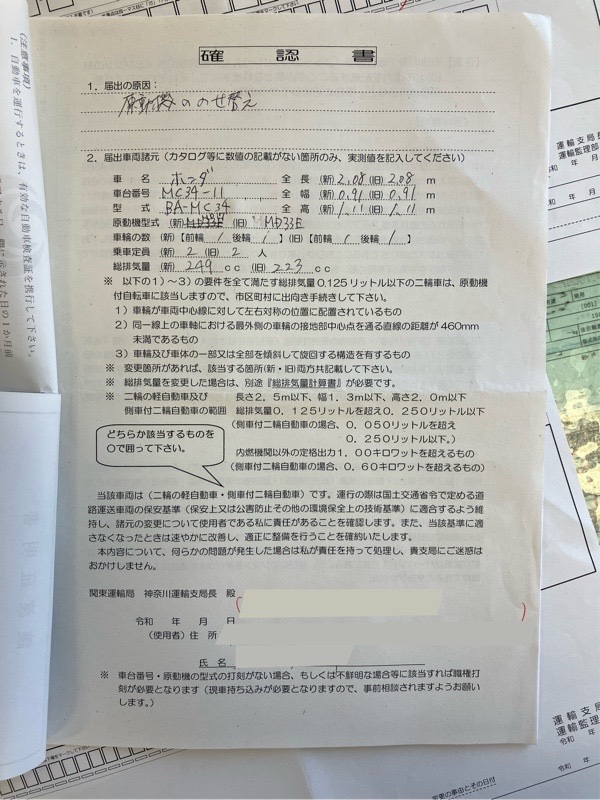 確認書
1.届出の原因：
原動機ののせ替え
2.届出車両諸元（カタログ等に数値の記載がない箇所のみ、実測値を記入してください）
車名 ホンダ 全長 (新)2.08(旧)2.08 m
車台番号 MC34-11 全幅 (新)0.91(旧)0.91 m
型式 BA-MC34 全高 (新)1.11(旧)1.11 m
原動機型式 (新) (旧) MD33E
車輪の数 (新)【前輪 1 後輪 1】(旧)【前輪 1 後輪 1】
乗車定員 (新) 2 (旧) 2 人
総排気量 (新) 249 cc (旧) 223 cc
※ 以下の1）～3）の要件を全て満たす総排気量0.125リットル以下の二輪車は、原動機
付自転車に該当しますので、市区町村に出向き手続きして下さい。
1）車輪が車両中心線に対して左右対称の位置に配置されているもの
2）同一線上の車軸における最外側の車輪の接地部中心点を通る直線の距離が460mm
未満であるもの
3）車輪及び車体の一部又は全部を傾斜して旋回する構造を有するもの
※ 変更箇所があれば、該当する箇所(新・旧)両方共記載して下さい。
※ 総排気量を変更した場合は、別途『総排気量計算書』が必要です。
※ 二輪の軽自動車及び 長さ2.5m以下、幅1.3m以下、高さ2.0m以下
側車付二輪自動車の範囲 総排気量0.125リットルを超え0.250リットル以下
（側車付二輪自動車の場合、0.050リットルを超え
0.250リットル以下。）
内燃機関以外の定格出力1.00キロワットを超えるもの
（側車付二輪自動車の場合、0.60キロワットを超えるもの）
どちらか該当するものを
○で囲って下さい。
当該車両は（二輪の軽自動車・側車付二輪自動車）です。運行の際は国土交通省令で定める道
路運送車両の保安基準（保安上又は公害防止その他の環境保全上の技術基準）に適合するよう維
持し、諸元の変更について使用者である私に責任があることを確認します。また、当該基準に適
さなくなったときは速やかに改善し、適正に整備を行うことを確約いたします。
本内容について、何らかの問題が発生した場合は私が責任を持って処理し、貴支局にご迷惑は
おかけしません。
関東運輸局 神奈川運輸支局長 殿
令和 年 月 日
（使用者）住所
氏名
※ 車台番号・原動機の型式の打刻がない場合、もしくは不鮮明な場合等に該当すれば職権打
刻が必要となります（現車持ち込みが必要となりますので、事前相談されますようお願い
します。）
（注意事項）
1．自動車を運行するときは、有効な自動車検査証を携行して下さい。
運輸支局長
運輸監理部
令和 年 月
運輸支局
運輸監理
令和 年
変更の事由とその日付